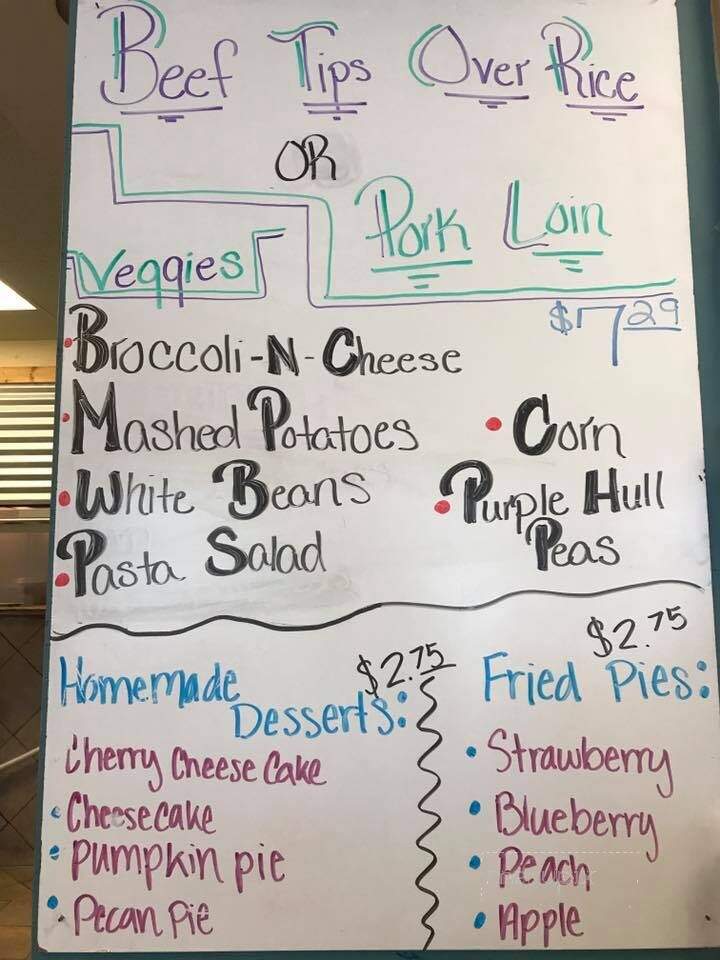 Beef Tips Over Rice
OR
Pork Loin
$7.29
Veggies
Broccoli-N-Cheese
Mashed Potatoes
White Beans
Pasta Salad
Corn
Purple Hull
Peas
$2.75
Homemade
Desserts:
Cherry Cheese Cake
Cheesecake
Pumpkin pie
Pecan Pie
$2.75
Fried Pies:
Strawberry
Blueberry
Peach
Apple